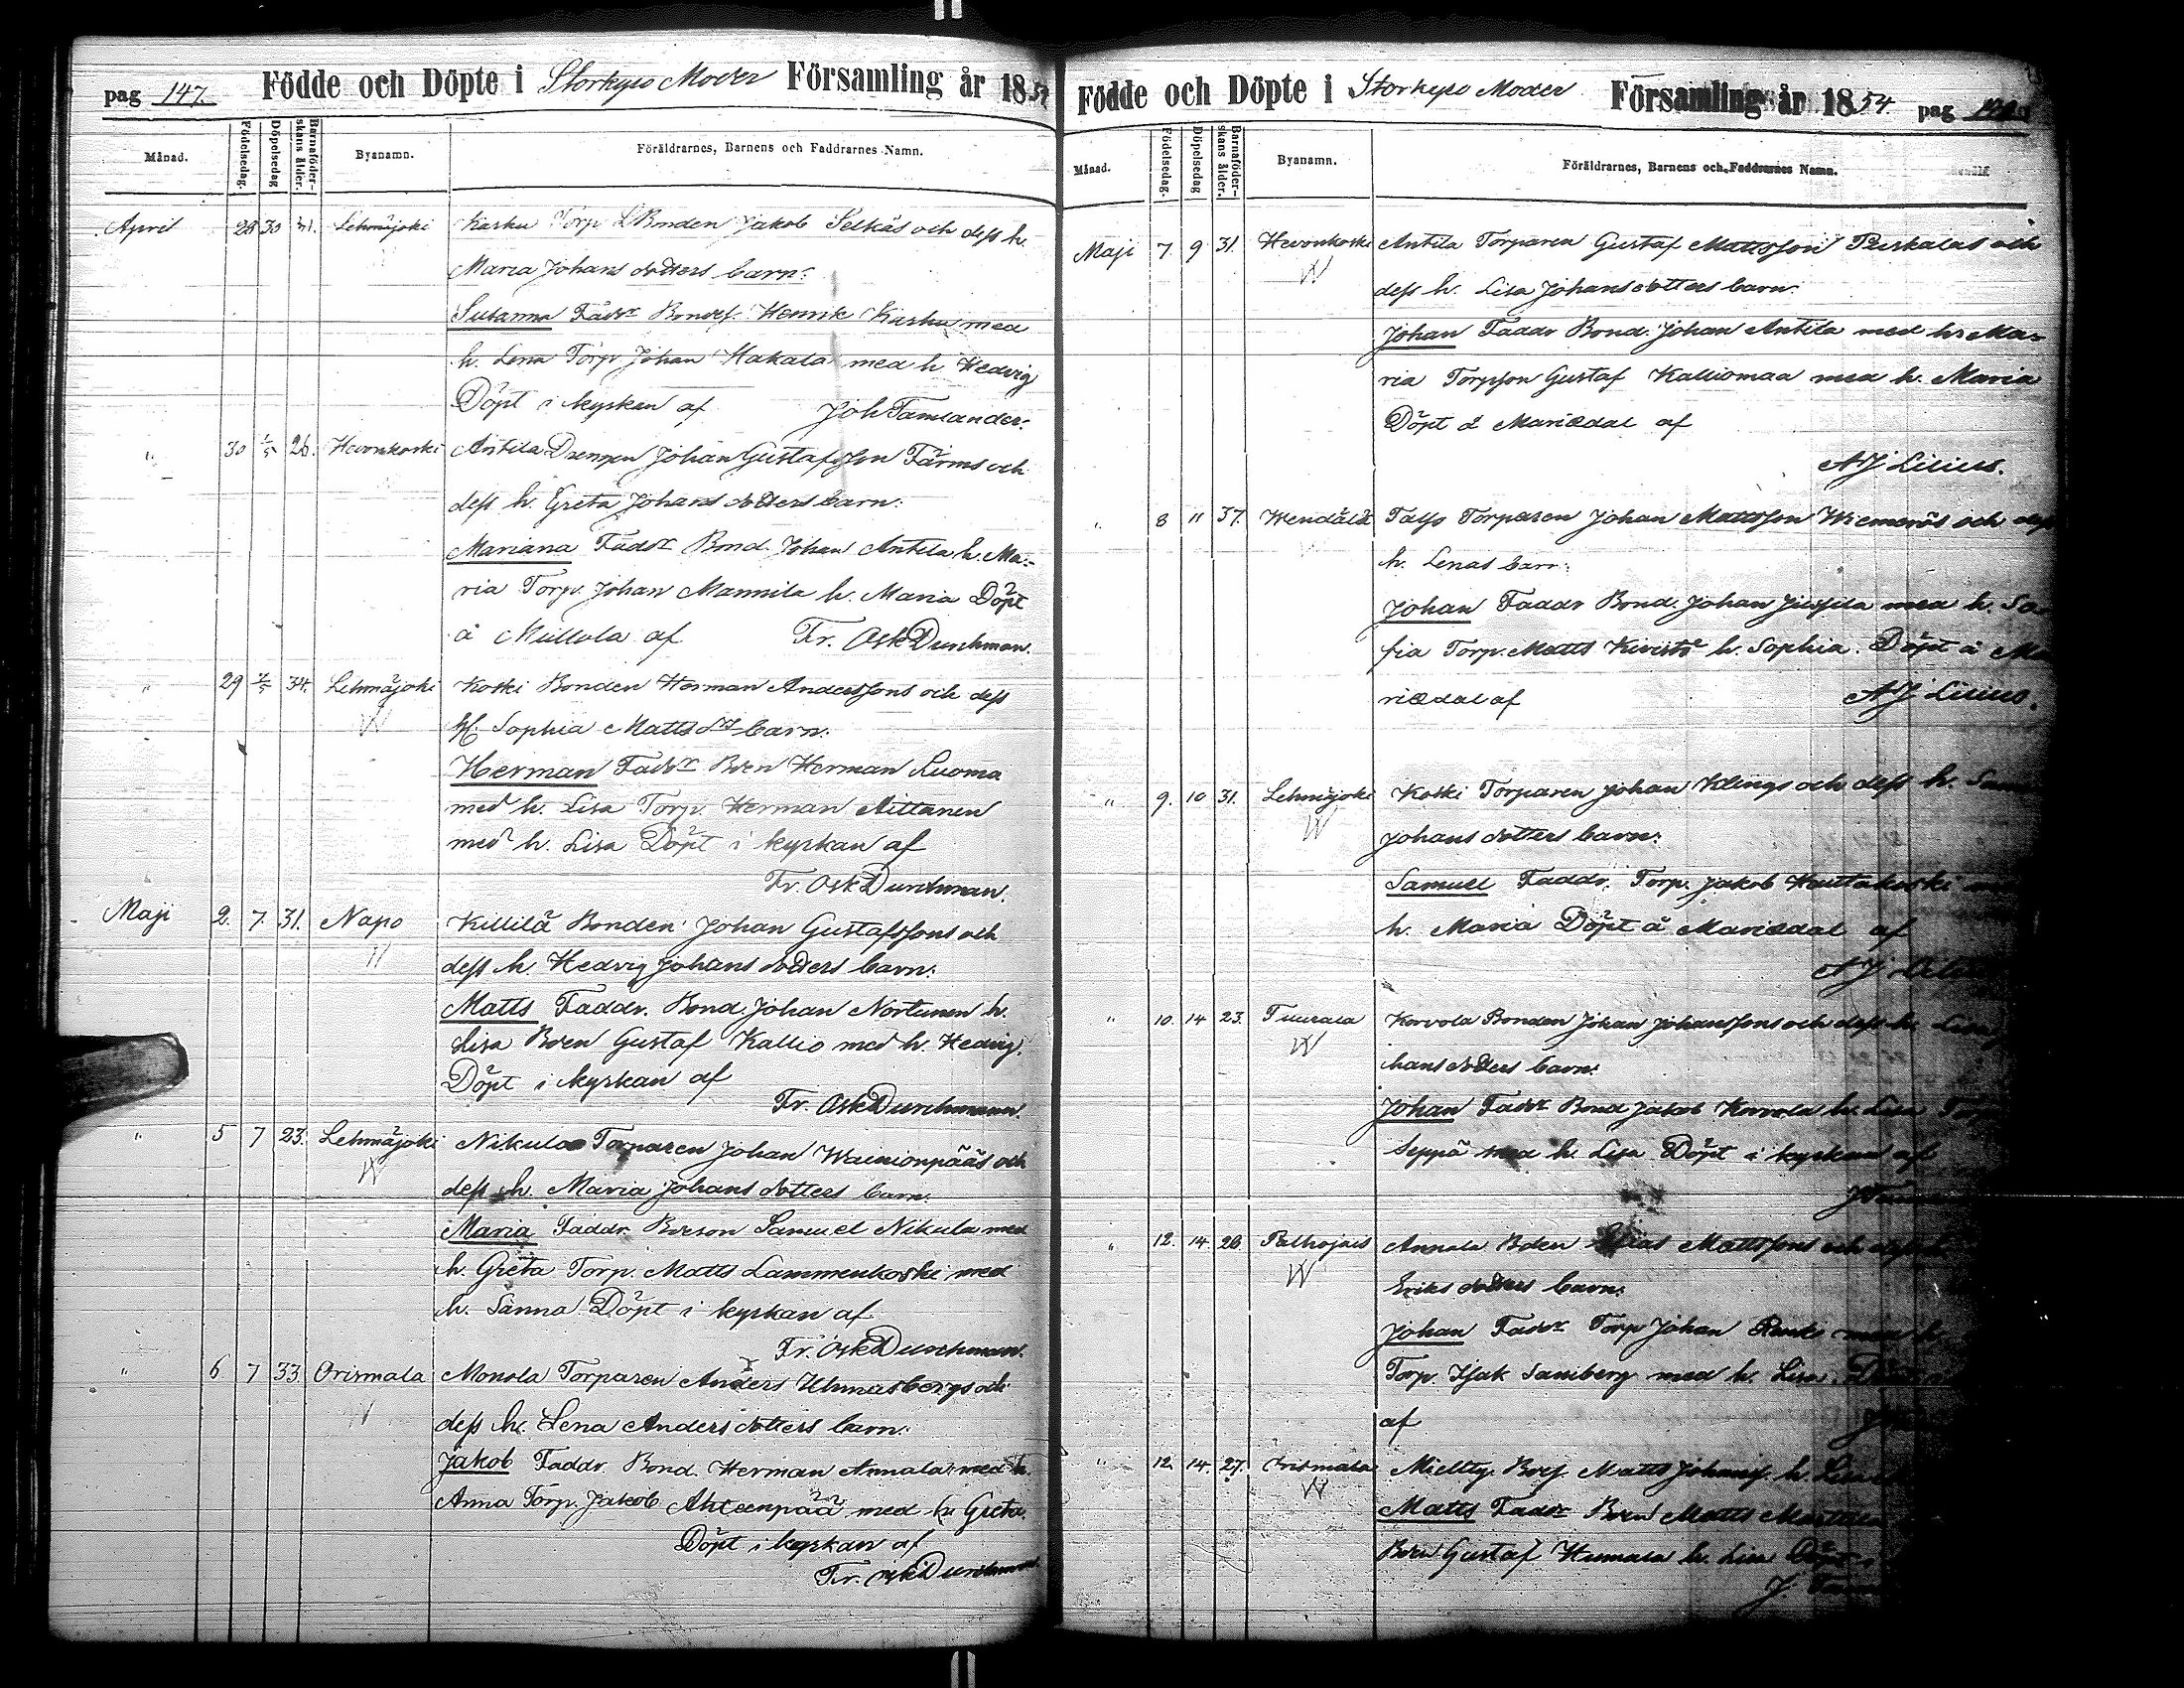 pag 147. Födde och Döpte i Storkyro Moder Församling år 1854
Månad. Födelsedag. Döpelsedag Barnaföderskans ålder. Byanamn. Föräldrarnes, Barnens och Faddrarnes Namn.
April 28 30 31. Lehmäjoki Karhu Torp Bonden Jakob Selkäs och dess h.
Maria Johans dotters barn:
Susanna Faddr Bondes. Henrik Karhu med
h. Lena Torp. Johan Hakala med h. Hedvig
Döpt i kyrkan af Joh Tamlander.
" 30 1/5 26. Hevonkoski Antila Drengen Johan Gustafsson Färms och
dess h. Greta Johans dotters barn:
Mariana Faddr Bond. Johan Antila h. Ma-
ria Torp. Johan Mannila h. Maria Döpt
å Mullola af Fr. Osk Durchman.
" 29 7/5 34. Lehmäjoki Koski Bonden Herman Anderssons och dess
H. Sophia Matts dr barn:
Herman Faddr Bden Herman Luoma
med h. Lisa Torp. Herman Aittanen
med h. Lisa Döpt i kyrkan af
Fr. Osk Durchman.
Maji 2. 7. 31. Napo Killilä Bonden Johan Gustafssons och
dess h. Hedvig Johans dotters barn:
Matts Faddr. Bond. Johan Nortunen h.
Lisa Bden Gustaf Kallio med h. Hedvig.
Döpt i kyrkan af
Fr. Osk Durchmann.
" 5 7 23. Lehmäjoki Nikula Torparen Johan Wainionpääs och
dess h. Maria Johans dotters barn.
Maria Faddr. Bdeson Samuel Nikula med
h. Greta Torp. Matts Lammenkoski med
h. Sanna Döpt i kyrkan af
Fr. Osk Durchman.
" 6 7 33. Orismala Monola Torparen Anders Uhmasbergs och
dess h. Lena Anders dotters barn:
Jakob Faddr. Bond. Herman Annala med h.
Anna Torp. Jakob Ahteenpää med h. Greta.
Döpt i kyrkan af
Fr. Osk Durchman
Födde och Döpte i Storkyro Moder Församling år 1854. pag
Månad. Födelsedag. Döpelsedag Barnaföderskans ålder. Byanamn. Föräldrarnes, Barnens och Faddrarnes Namn.
Maji 7. 9 31. Hevonkoski Antila Torparen Gustaf Mattsson Puskalas och
dess h. Lisa Johansdotters barn:
Johan Faddr Bond. Johan Antila med h. Ma-
ria Torpson Gustaf Kalliomaa med h. Maria
Döpt å Mariedal af
A J Lilius.
" 8 11 37. Wendälä Talso Torparen Johan Mattsson och dess
h. Lenas barn:
Johan Faddr Bond. Johan Jussila med h. So-
fia Torp. Matts Kivistö h. Sophia. Döpt å Ma
riedal af A J Lilius.
" 9. 10 31. Lehmäjoki Koski Torparen Johan Klings och dess h. Sanna
Johans dotters barn:
Samuel Faddr. Torp. Jakob Hauttakoski med
h. Maria Döpt å Mariedal af
A J Lilius
" 10. 14 23. Tuurala Korvola Bonden Johan Johanssons och dess h. Lisa
hans dotters barn:
Johan Faddr Bond Jakob Korvola h. Lisa Torp
Seppä med h. Lisa Döpt i kyrkan af
" 12. 14. 26. Palhojais Annala Bden Elias Mattssons och dess h.
Eriks dotters barn:
Johan Faddr Torp Johan Ranki med h.
Torp. Isak Sandberg med h. Lisa. Döpt
af
" 12. 14. 27. Orismala Mielty Bdes. Matts Johanss. h.
Matts Faddr Bden Matts Marttila
Bden Gustaf Humala h. Lisa Döpt
J.